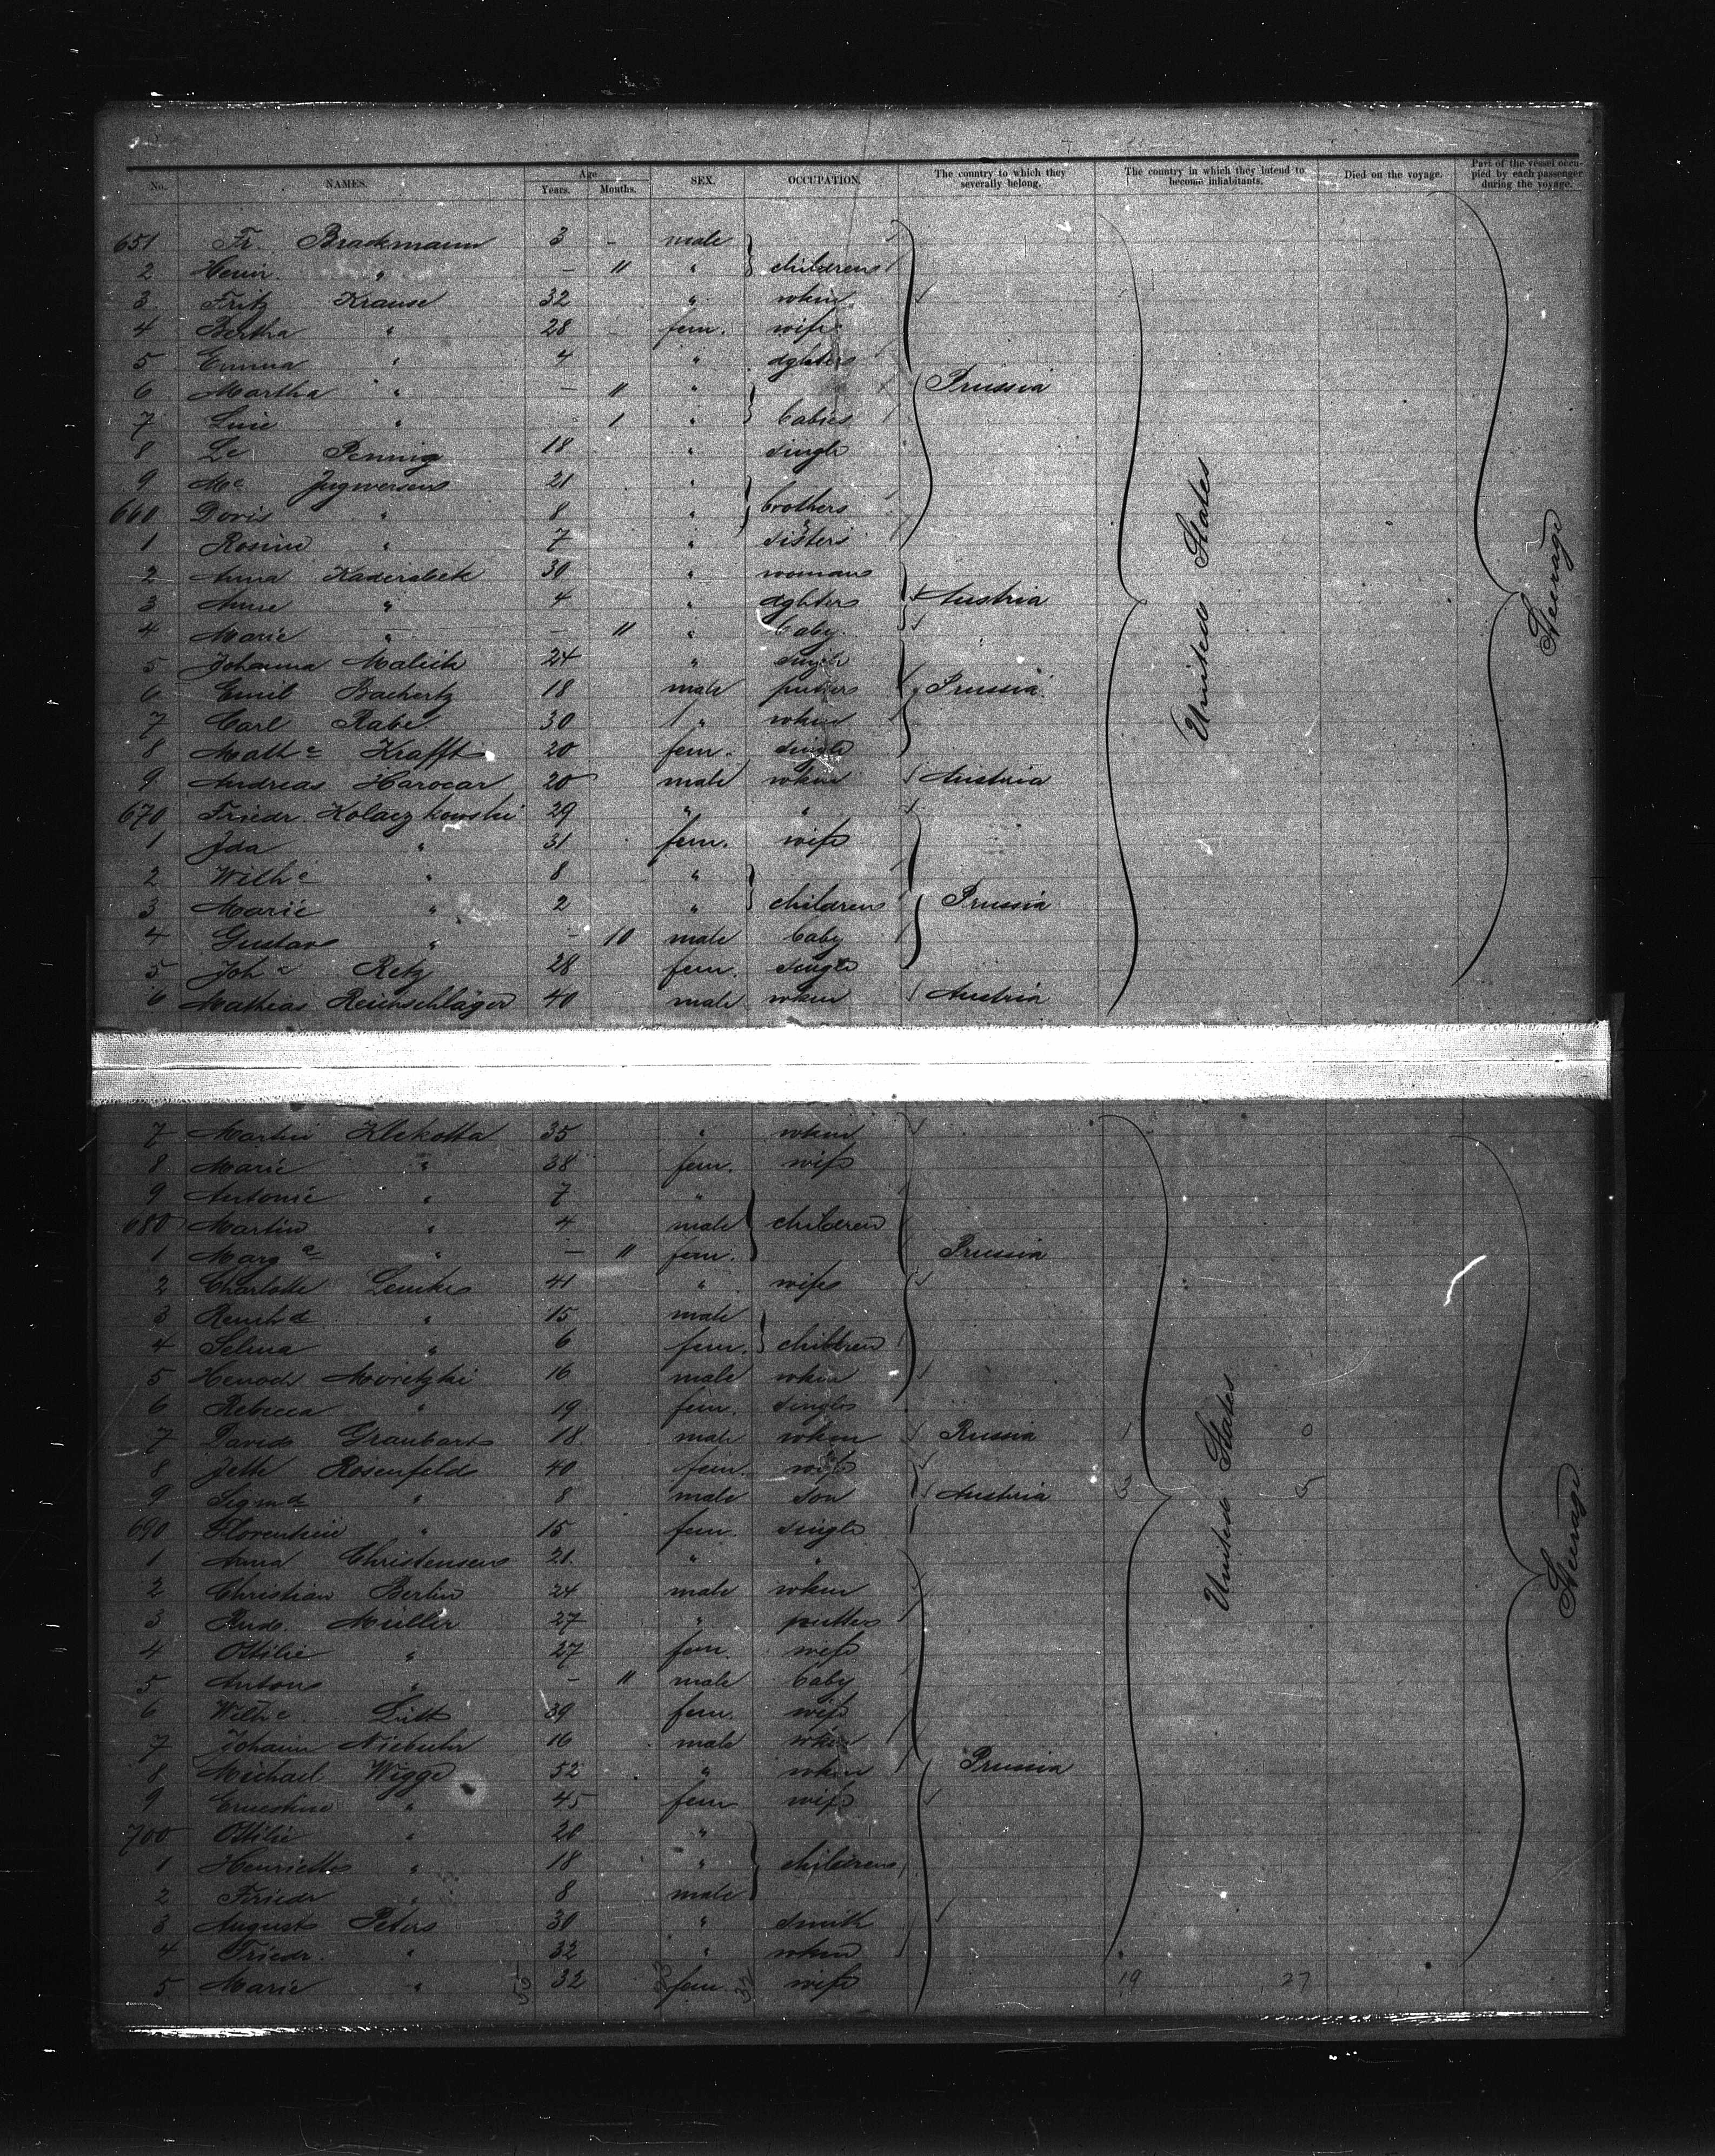 No. NAMES. Age Years. Months. SEX. OCCUPATION. The country to which they severally belong. The country in which they intend to become inhabitants. Died on the voyage. Part of the vessel occupied by each passenger during the voyage.
651 Fr. Brackmann 3 - male
2 Heinr. " - 11 " children
3 Fritz Krause 32 " wkm
4 Bertha " 28 - fem. wife
5 Emma " 4 " dghters
6 Martha " - 11 " Prussia
7 " - 1 " babies
8 Penning 18 " single
9 21 "
660 Doris " 8 " brothers
1 Rosine " 7 " sisters
2 Anna Kaderabek 30 " woman
3 Anne " 4 " dghters Austria
4 Marie " - 11 " baby
5 Johanna Malick 24 " single
6 Emil Bachertz 18 male Prussia
7 Carl Rabe 30 " wkm
8 Math e Krafft 20 fem. single
9 Andreas Harocar 20 male wkm Austria
670 Friedr. Kolaczkowski 29 " "
1 Ida " 31 fem. wife
2 Wilh e " 8 "
3 Marie " 2 " children Prussia
4 Gustav " - 10 male baby
5 Joh a Retz 28 fem. single
6 Mathias Reichschläger 40 male wkm Austria
United States
Steerage
7 Martin Klekotta 35 " wkm
8 Marie " 38 fem. wife
9 Antonie " 7 "
680 Martin " 4 male children
1 Marg e " - 11 fem. Prussia
2 Charlotte Lemke 41 " wife
3 " 15 male
4 Selma " 6 fem. children
5 Henoch Moretzki 16 male wkm
6 Rebecca " 19 fem. single
7 David Graubart 18 male wkm Russia 1 0
8 Jette Rosenfeld 40 fem. wife
9 Sigmd " 8 male son Austria 3 5
690 Florentine " 15 fem. single
1 Anna Christensen 21 " "
2 Christian Berlin 24 male wkm
3 Rud. Müller 27 "
4 Ottilie " 27 fem. wife
5 Anton " - 11 male baby
6 Wilh e 39 fem. wife
7 Johann Niebuhr 16 male wkm
8 Michael Wigge 52 " wkm Prussia
9 Ernestine " 45 fem wife
700 Ottilie " 20 "
1 Henriette " 18 " children
2 Friedr " 8 male
3 August Peters 30 " smith
4 Friedr. " 32 " wkm
5 Marie " 32 fem wife 19 27
United States
Steerage